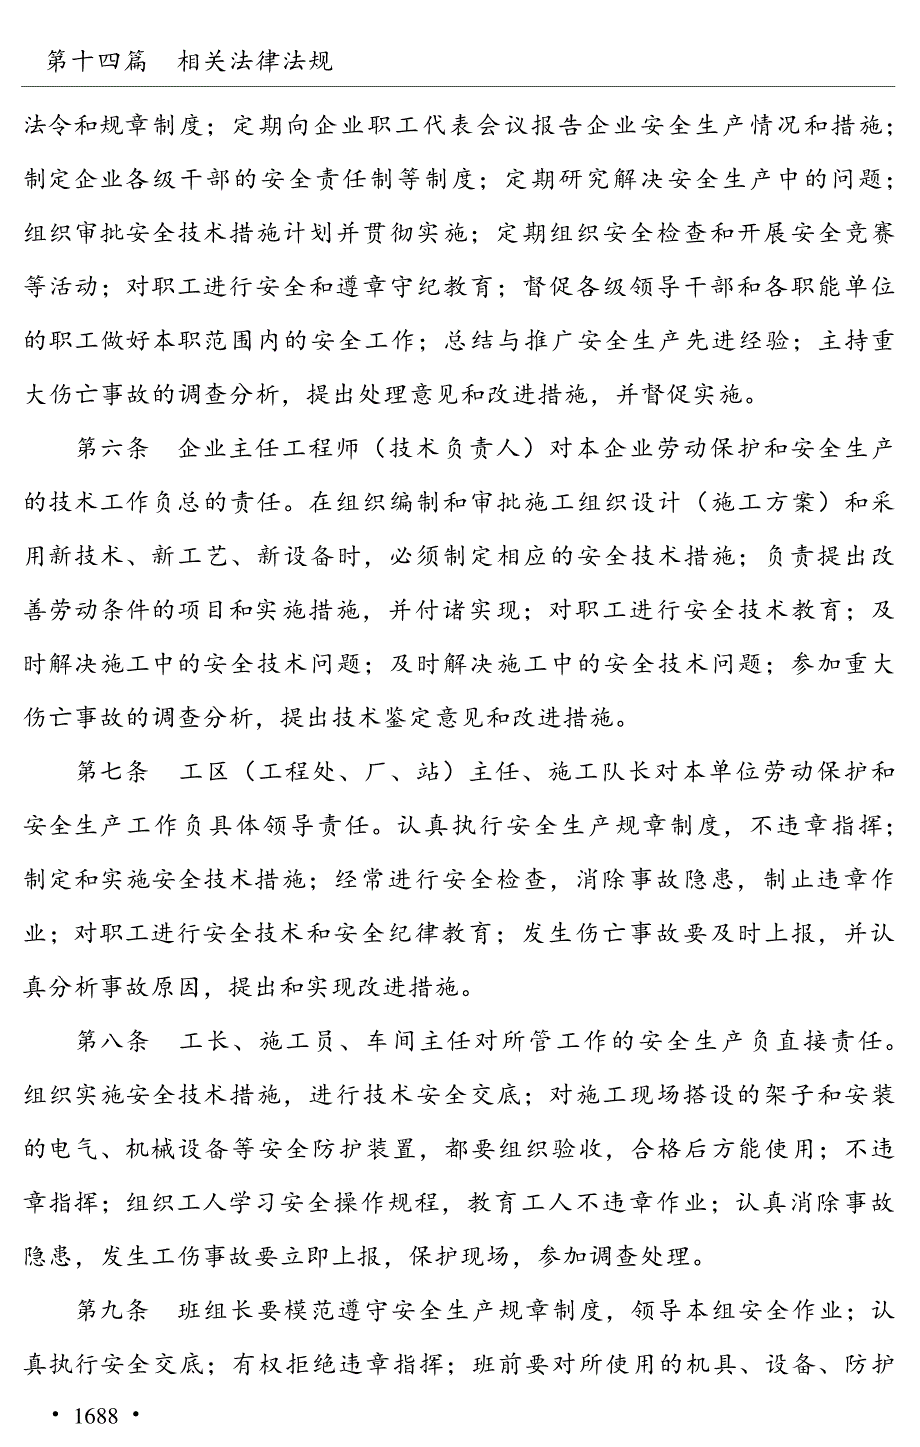 第十四篇　相关法律法规
法令和规章制度；定期向企业职工代表会议报告企业安全生产情况和措施；
制定企业各级干部的安全责任制等制度；定期研究解决安全生产中的问题；
组织审批安全技术措施计划并贯彻实施；定期组织安全检查和开展安全竞赛
等活动；对职工进行安全和遵章守纪教育；督促各级领导干部和各职能单位
的职工做好本职范围内的安全工作；总结与推广安全生产先进经验；主持重
大伤亡事故的调查分析，提出处理意见和改进措施，并督促实施。
第六条　企业主任工程师（技术负责人）对本企业劳动保护和安全生产
的技术工作负总的责任。在组织编制和审批施工组织设计（施工方案）和采
用新技术、新工艺、新设备时，必须制定相应的安全技术措施；负责提出改
善劳动条件的项目和实施措施，并付诸实现；对职工进行安全技术教育；及
时解决施工中的安全技术问题；及时解决施工中的安全技术问题；参加重大
伤亡事故的调查分析，提出技术鉴定意见和改进措施。
第七条　工区（工程处、厂、站）主任、施工队长对本单位劳动保护和
安全生产工作负具体领导责任。认真执行安全生产规章制度，不违章指挥；
制定和实施安全技术措施；经常进行安全检查，消除事故隐患，制止违章作
业；对职工进行安全技术和安全纪律教育；发生伤亡事故要及时上报，并认
真分析事故原因，提出和实现改进措施。
第八条　工长、施工员、车间主任对所管工作的安全生产负直接责任。
组织实施安全技术措施，进行技术安全交底；对施工现场搭设的架子和安装
的电气、机械设备等安全防护装置，都要组织验收，合格后方能使用；不违
章指挥；组织工人学习安全操作规程，教育工人不违章作业；认真消除事故
隐患，发生工伤事故要立即上报，保护现场，参加调查处理。
第九条　班组长要模范遵守安全生产规章制度，领导本组安全作业；认
真执行安全交底；有权拒绝违章指挥；班前要对所使用的机具、设备、防护
· 1688 ·